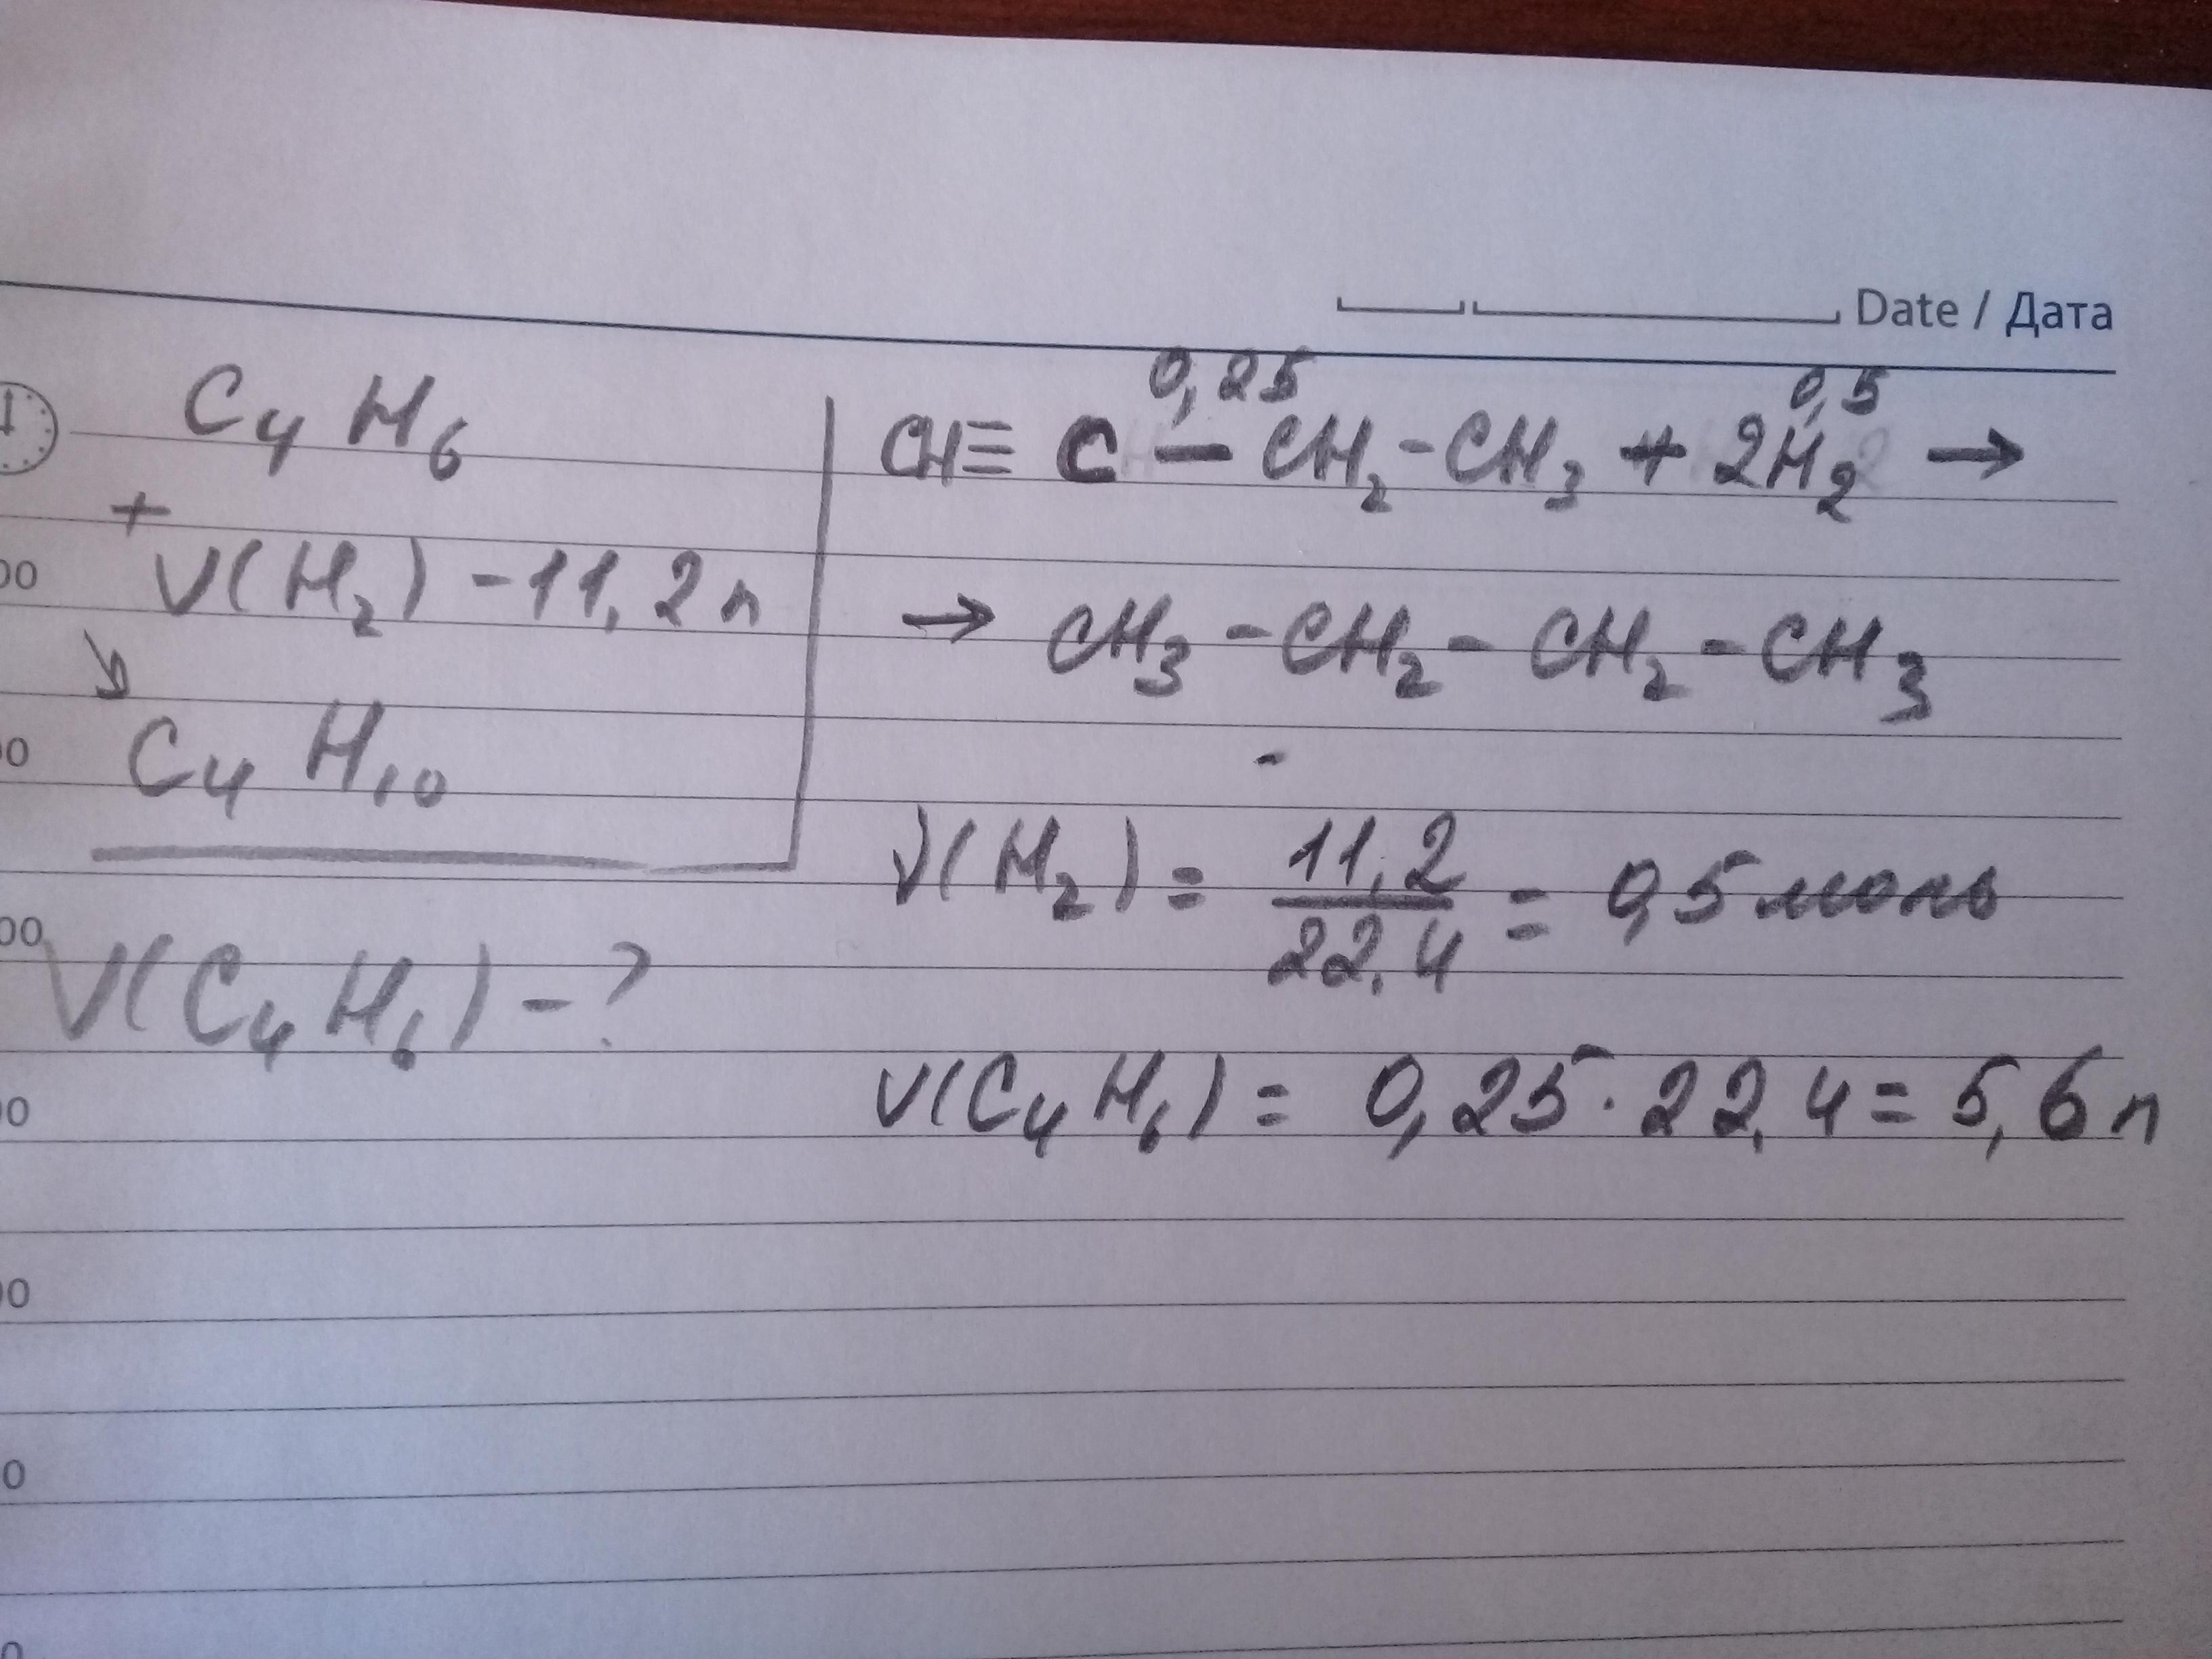 Date / Дата
C₄H₆
+
V(H₂) - 11,2 л
↘
C₄H₁₀
V(C₄H₆) - ?
0,25 0,5
CH≡C-CH₂-CH₃ + 2H₂ →
→ CH₃-CH₂-CH₂-CH₃
ν(H₂) = 11,2/22,4 = 0,5 моль
V(C₄H₆) = 0,25 · 22,4 = 5,6 л
00
00
00
00
00
0
0